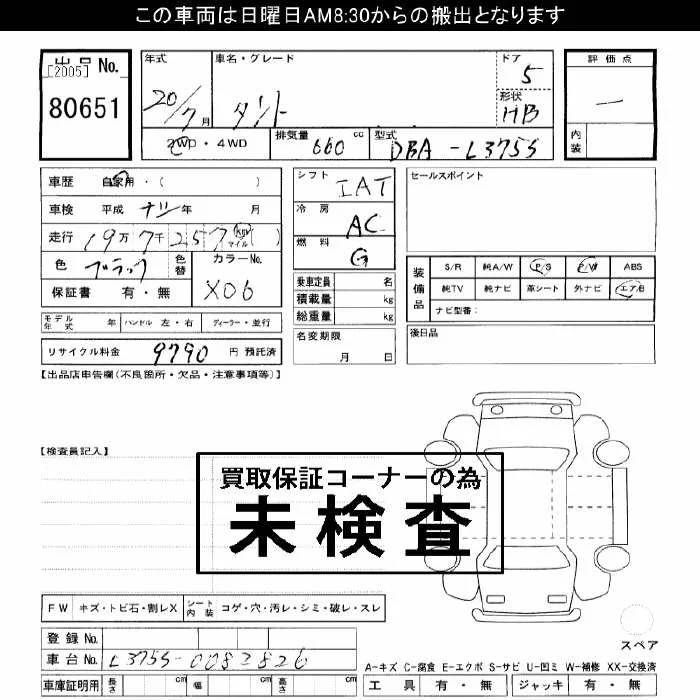 この車両は日曜日AM8:30からの搬出となります
出品 No.
[2005]
80651
年式
20/7月
車名・グレード
タント
ドア
5
形状
HB
2WD・4WD
排気量 660 cc
型式 DBA-L375S
評価点
―
内装
車歴 自家用・( )
車検 平成 ナシ 年 月
走行 19万7千257 km マイル ( )
色 ブラック
色替
カラーNo.
X06
保証書 有・無
シフト
IAT
冷房
AC
燃料
G
乗車定員 名
積載量 kg
総重量 kg
セールスポイント
装備品
S/R 純A/W P/S P/W ABS
純TV 純ナビ 革シート 外ナビ エアB
ナビ型番:
モデル年式 年 ハンドル 左・右 ディーラー・並行
リサイクル料金 9790 円 預託済
名変期限
月 日
後日品
【出品店申告欄(不良箇所・欠品・注意事項等)】
【検査員記入】
買取保証コーナーの為
未検査
FW キズ・トビ石・割レX シート内装 コゲ・穴・汚レ・シミ・破レ・スレ
登録 No.
車台 No. L375S-0082826
車庫証明用 長さ cm 幅 cm 高さ cm
スペア
A-キズ C-腐食 E-エクボ S-サビ U-凹ミ W-補修 XX-交換済
工具 有・無 ジャッキ 有・無